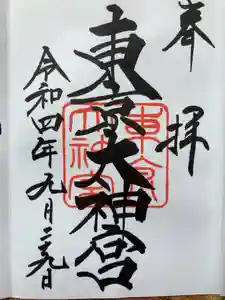 奉拝
東京大神宮
令和四年九月二十九日
東京大神宮